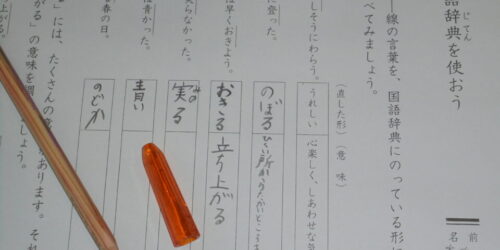 語辞典を使おう
じてん
線の言葉を、国語辞典にのっている形に
べてみましょう。
前
名
しそうにわらう。
に登った。
は早くおきよう。
実らなかった。
は青かった。
春の日。
(直した形)(意 味)
うれしい 心楽しく、しあわせな気
のぼる ひくい所から
おきる 立ち上がる
実る
みの
青い
のどか
」には、たくさんの
あります。それ
がる」の意味を調
しょう。
上がる。